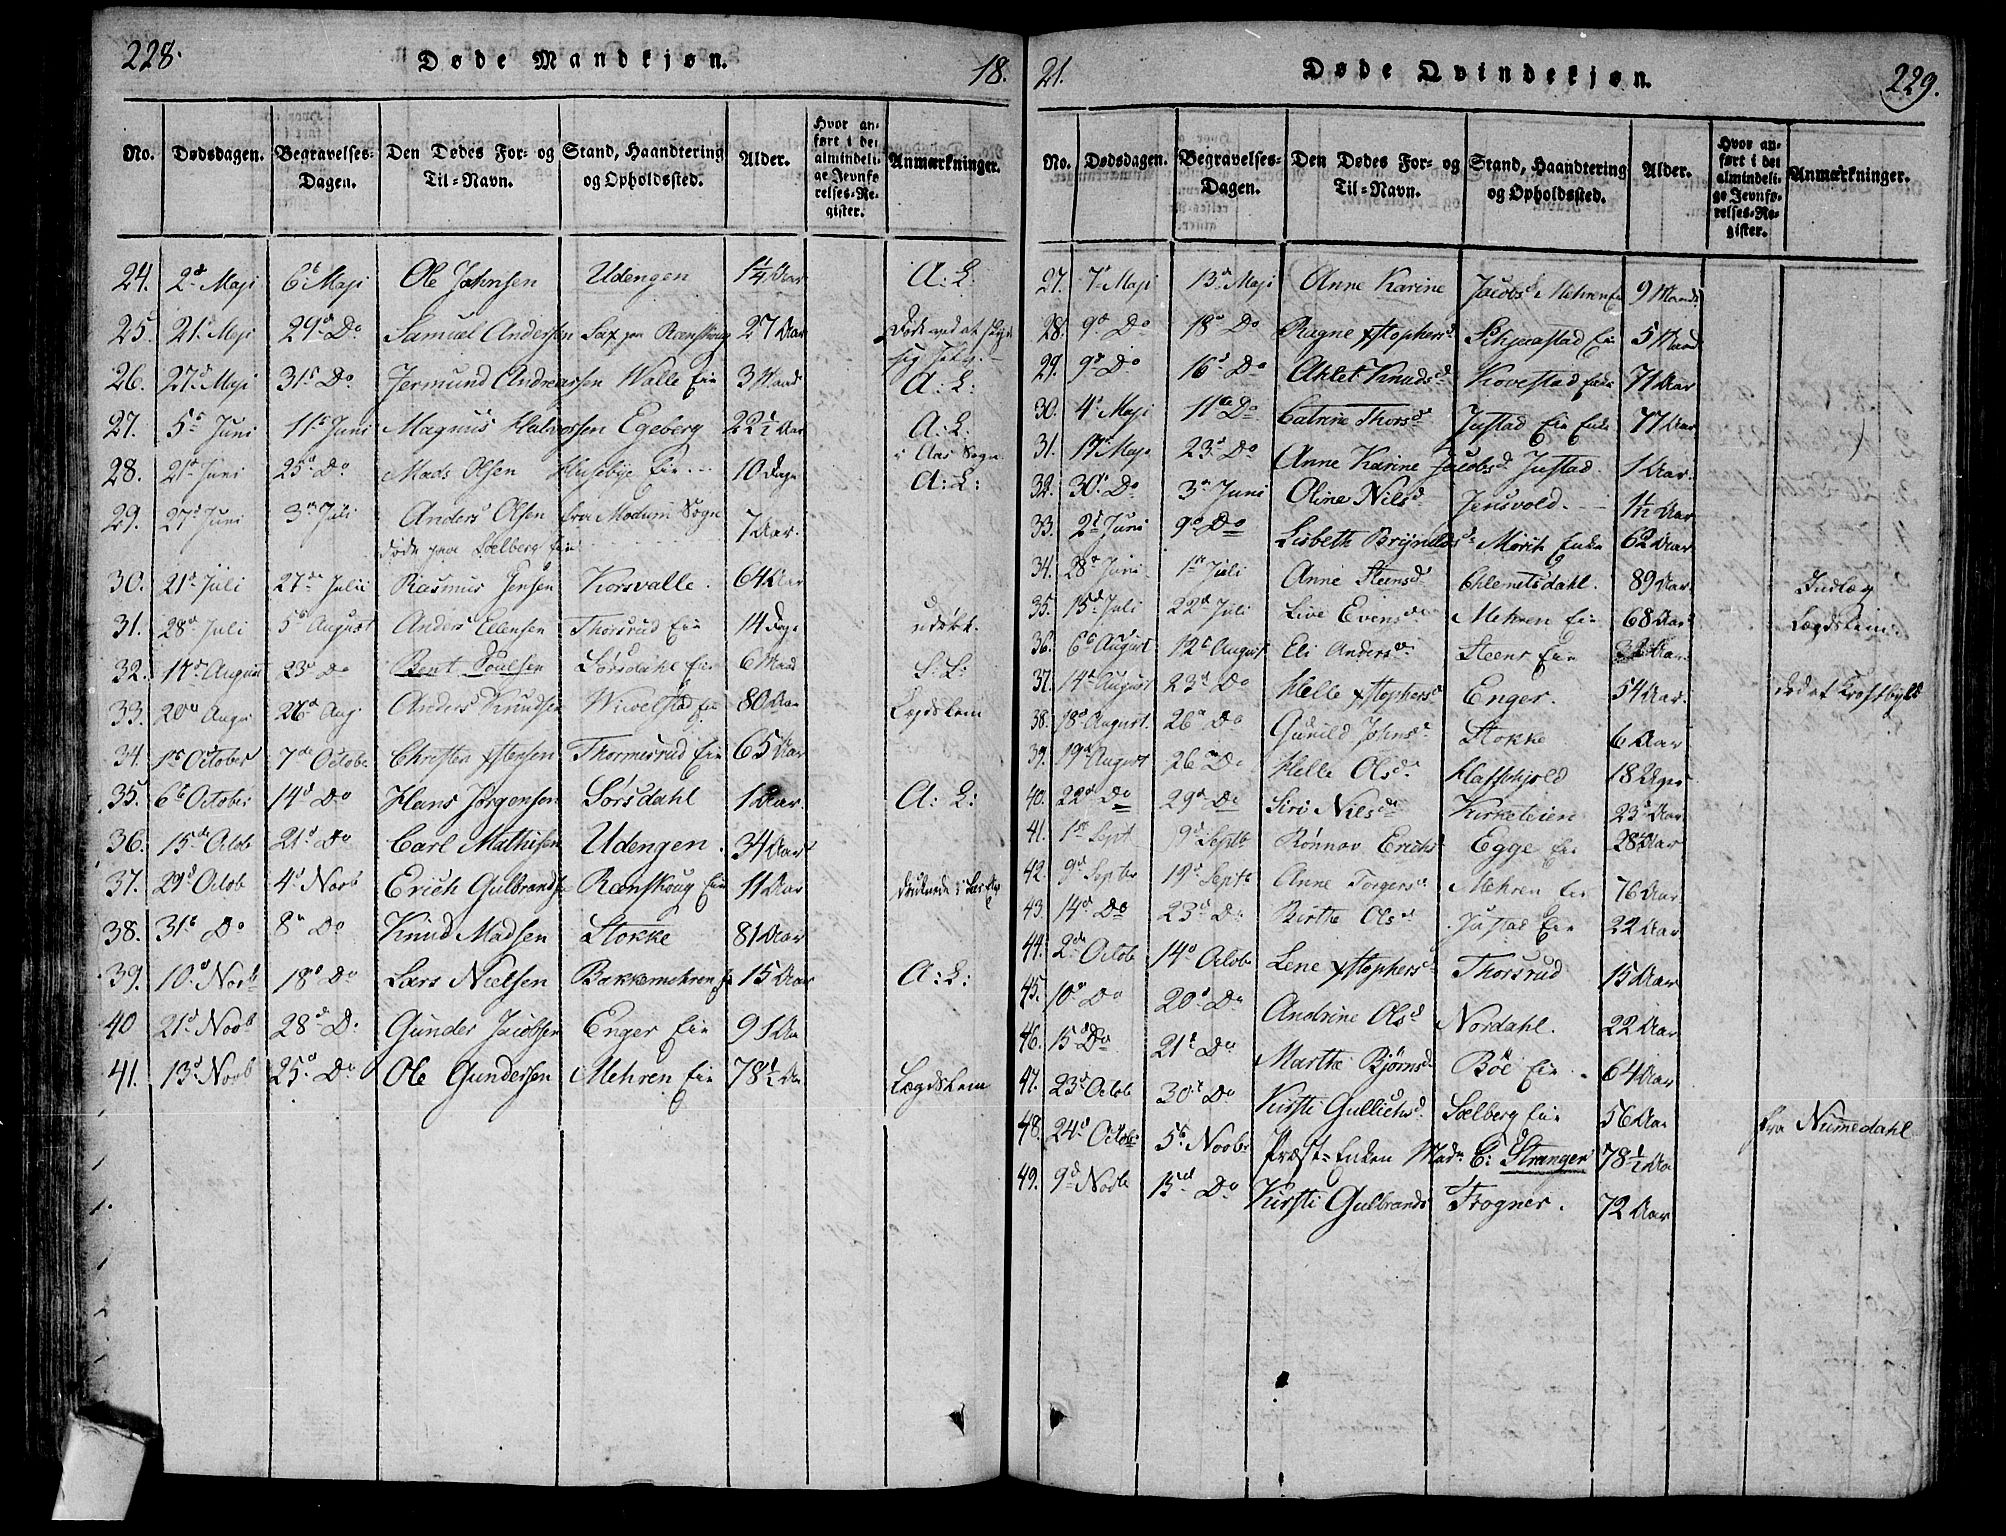 228.
Døde Mandkjøn.
18.
No. Dødsdagen. Begravelses-Dagen. Den Dødes For- og Til-Navn. Stand, Haandtering og Opholdssted. Alder. Hvor anført i det almindelige Jevnførelses-Register. Anmærkninger.
24. 2d Maji 6te Maji Ole Johnsen Udengen 1 1/4 Aar A: L:
25. 21d Maji 29de Do Samuel Andersen Sax paa Rønskoug 27 Aar Døde ved at
sig
26. 27d Maji 31te Do Jermund Andreassen Walle Eie 3 Maad A: L:
27. 5te Juni 11te Juni Magnus Halvorsen Egeberg 22 1/2 Aar A: L:
i Aas Sogn
28. 21d Juni 25d Do Mads Olsen Huseby Eie 10 Dage A: L:
29. 27d Juni 3de Juli Anders Olsen fra Modum Sogn 7 Aar.
døde paa Sælberg Eie
30. 21d Juli 27de Julii Rasmus Jensen Korsvalle. 64 Aar
31. 28d Juli 5te August Anders Ellensen Thorsrud Eie 14 Dage udøbt.
32. 17de August 23d Do Bent Poulsen Sørsdahl Eie 6 Maad S: L:
33. 20de Augu 26d Aug Anders Knudsen Wivelstad Eie 80 Aar Lægdslem
34. 1te October 7de Octobr Christen Xstensen Thormesrud Eie 65 Aar
35. 6te October 14d Do Hans Jørgensen Sørsdahl 1 Aar. A: L:
36. 15de Octob 21d Do Carl Mathisen Udengen. 34 Aar
37. 29d Octob 4d Novb Erich Gulbrands Rønskoug Eie 11 Aar druknede i
38. 31te Do 8de Do Knud Madsen Stokke 81 Aar
39. 10d Novb 18d Do Lars Nielsen Bakkemehren 15 Aar A: L:
40 21d Novb 28de D: Gunder Jacobsen Enger Eie 91 Aa
41. 13d Novb 25d Do Ole Gundersen Mehren Eie 78 1/2 Aa Lægdslem
21.
Døde Qvindekjøn.
229.
No. Dødsdagen. Begravelses-Dagen. Den Dødes For- og Til-Navn. Stand, Haandtering og Opholdssted. Alder. Hvor anført i det almindelige Jevnførelses-Register. Anmærkninger.
27. 7d Maji 13d Maji Anne Karine Jacobsd Mehren Eie 9 Maad
28. 9d Do 18d Do Ragne Xstophersd Skjeastad Eie 5 Maad
29. 9d Do 16d Do Aslet Knudsd Kovestad Enke 71 Aar
30. 4d Maji 11te Do Catrine Thorsd Justad Eie Enke 77 Aar
31. 17d Maji 23d Do Anne Karine Jacobsd Justad. 1 Aar.
32. 30d Do 3de Juni Oline Nilsd Jensvold. 1 1/2 Aar
33. 2d Juni 9d Do Lisbeth Brynilds Mørk Enke 62 Aar
34. 28d Juni 1te Juli Anne Steensd Clemetsdahl. 89 Aar Indlæg
35. 15d Juli 22d Juli Live Evensd Mehren Eie 68 Aar Lægdslem
36. 6te August 12te August Eli Andersd Steens Eie 32 Aar
37. 14d August 23d Do Helle Xstophersd Enger. 54 Aar. død af
38. 18d August. 26d Do Gunild Johnsd Stokke 6 Aar
39. 19d August 26 Do Helle Olsd Haftskjold 18 Dage
40. 22d Do 29d Do Siri Nilsd Kirketeien 23 Aar
41. 1te Sept 9d Septb Rønnov Erichs Egge Eie 28 Aar
42. 9d Septbr 19d Septb Anne Torgersd Mehren Eie 76 Aar
43. 14d Do 23d Do Birthe Olsd Justad Eie 22 Aar
44. 2de Octob 14d Octob Lene Xstophersd Thorsrud 15 Aar
45. 10d Do 20d Do Andrine Olsd Nordahl. 22 Aar
46. 15d Do 21d Do Marthe Bjørnsd Böe Eie 64 Aar
47. 23d Octob 30d Do Kirsti Gullichsd Sælberg Eie 56 Aar
48. 24d Octob 5te Novb Præst-Enken Mad. C: Stranger 78 1/2 Aa fra Nummedahl
49. 9d Novb 15d Do Kirsti Gulbrands Frogner. 72 Aar